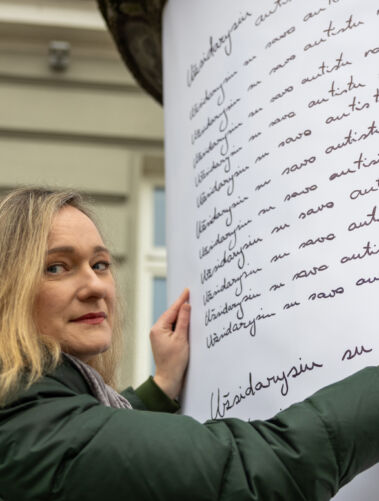 Užsidarysiu autistu
Užsidarysiu su savo autistu
Užsidarysiu su savo autistu
Užsidarysiu su savo autistu
Užsidarysiu su savo autistu
Užsidarysiu su savo autistu
Užsidarysiu su savo autistu
Užsidarysiu su savo autistu
Užsidarysiu su savo autistu
Užsidarysiu su savo autistu
Užsidarysiu su savo
Užsidarysiu su